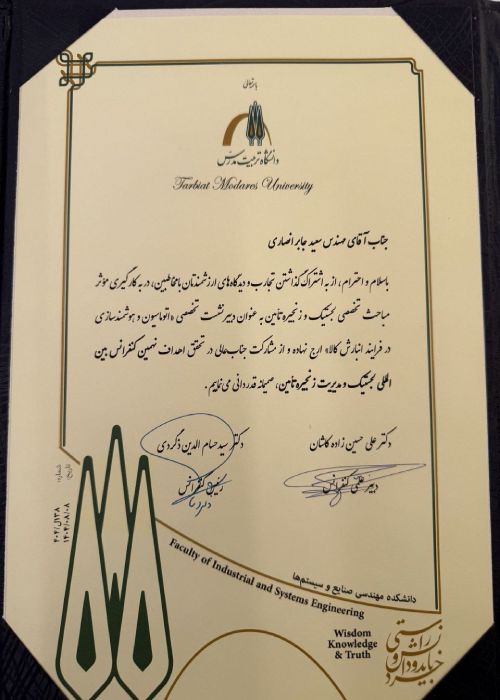 باسمه‌تعالی
دانشگاه تربیت مدرس
Tarbiat Modares University
جناب آقای مهندس سعید جابر انصاری
باسلام و احترام، از به اشتراک گذاشتن تجارب و دیدگاه‌های ارزشمندتان با مخاطبین، در به کارگیری مؤثر
مباحث تخصصی لجستیک و زنجیره تأمین به عنوان دبیر نشست تخصصی «اتوماسیون و هوشمندسازی
در فرایند انبارش کالا» ارج نهاده و از مشارکت جناب‌عالی در تحقق اهداف نهمین کنفرانس بین
المللی لجستیک و مدیریت زنجیره تأمین، صمیمانه قدردانی می‌نماییم.
دکتر علی حسین زاده کاشان
دبیر علمی کنفرانس
دکتر سید حسام الدین ذگردی
رئیس کنفرانس
شماره:
تاریخ:
۱۴۰۴/۰۸/۰۸
دانشکده مهندسی صنایع و سیستم‌ها
Faculty of Industrial and Systems Engineering
Wisdom
Knowledge
& Truth